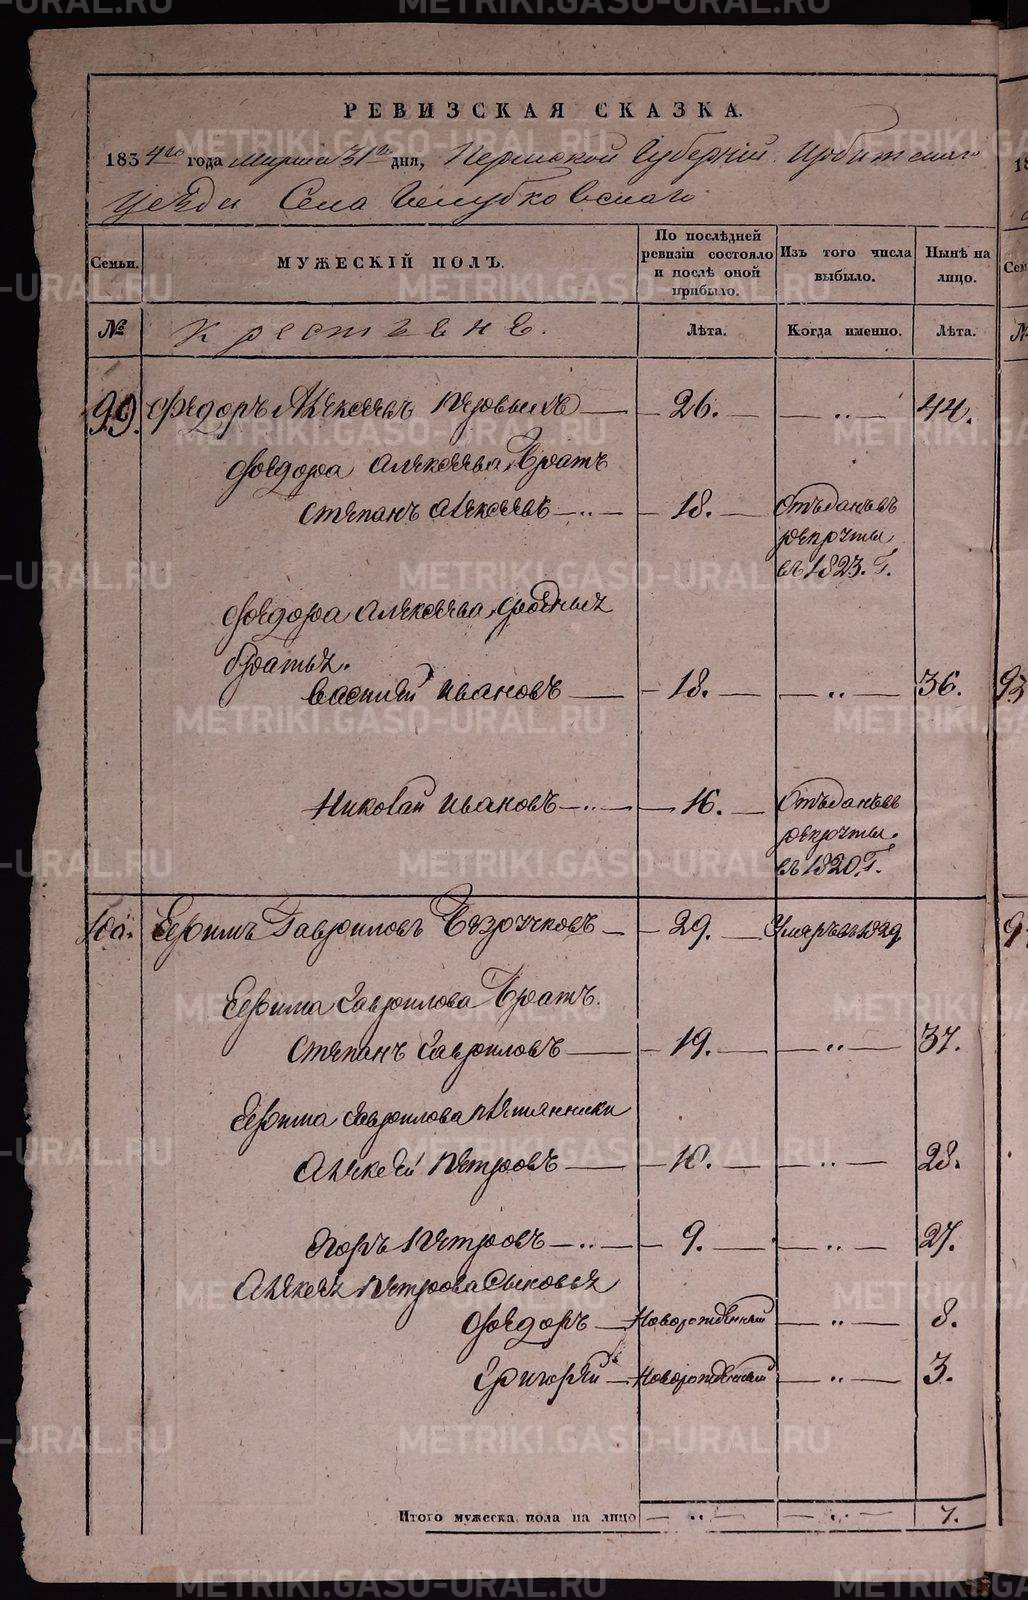 РЕВИЗСКАЯ СКАЗКА.
1834го года Марта 31го дня, Пермской Губерніи Ирбитскаго
уезда Села
Семьи. МУЖЕСКІЙ ПОЛЪ. По послѣдней ревизіи состояло и послѣ оной прибыло. Изъ того числа выбыло. Нынѣ на лицо.
№ Крестьяне. Лѣта. Когда именно. Лѣта.
99. Федоръ Алексеевъ — 26. — „ — 44.
Федора Алексеева Братъ
Степанъ Алексеевъ — „ — 18. — Отъданъ въ
рекруты
въ 1823. Г.
Федора Алексеева
братья.
Василей Ивановъ — 18. — „ — 36.
Николай Ивановъ — „ — 16. — Отъданъ въ
рекруты.
въ 1820. Г.
100. Ефимъ Гавриловъ — 29. — Умеръ въ 1829
Ефима Гаврилова Братъ.
Степанъ Гавриловъ — 19. — „ — 37.
Ефима Гаврилова племянники
Алексей Петровъ — 10. — „ — 28.
Егоръ Петровъ — „ — 9. — „ — 27.
Алексея Петрова Сыновья
Федоръ — Новорожденный — „ — 8.
Григорей — Новорожденный — „ — 3.
Итого мужеска пола на лицо — „ — „ — 7.
METRIKI.GASO-URAL.RU